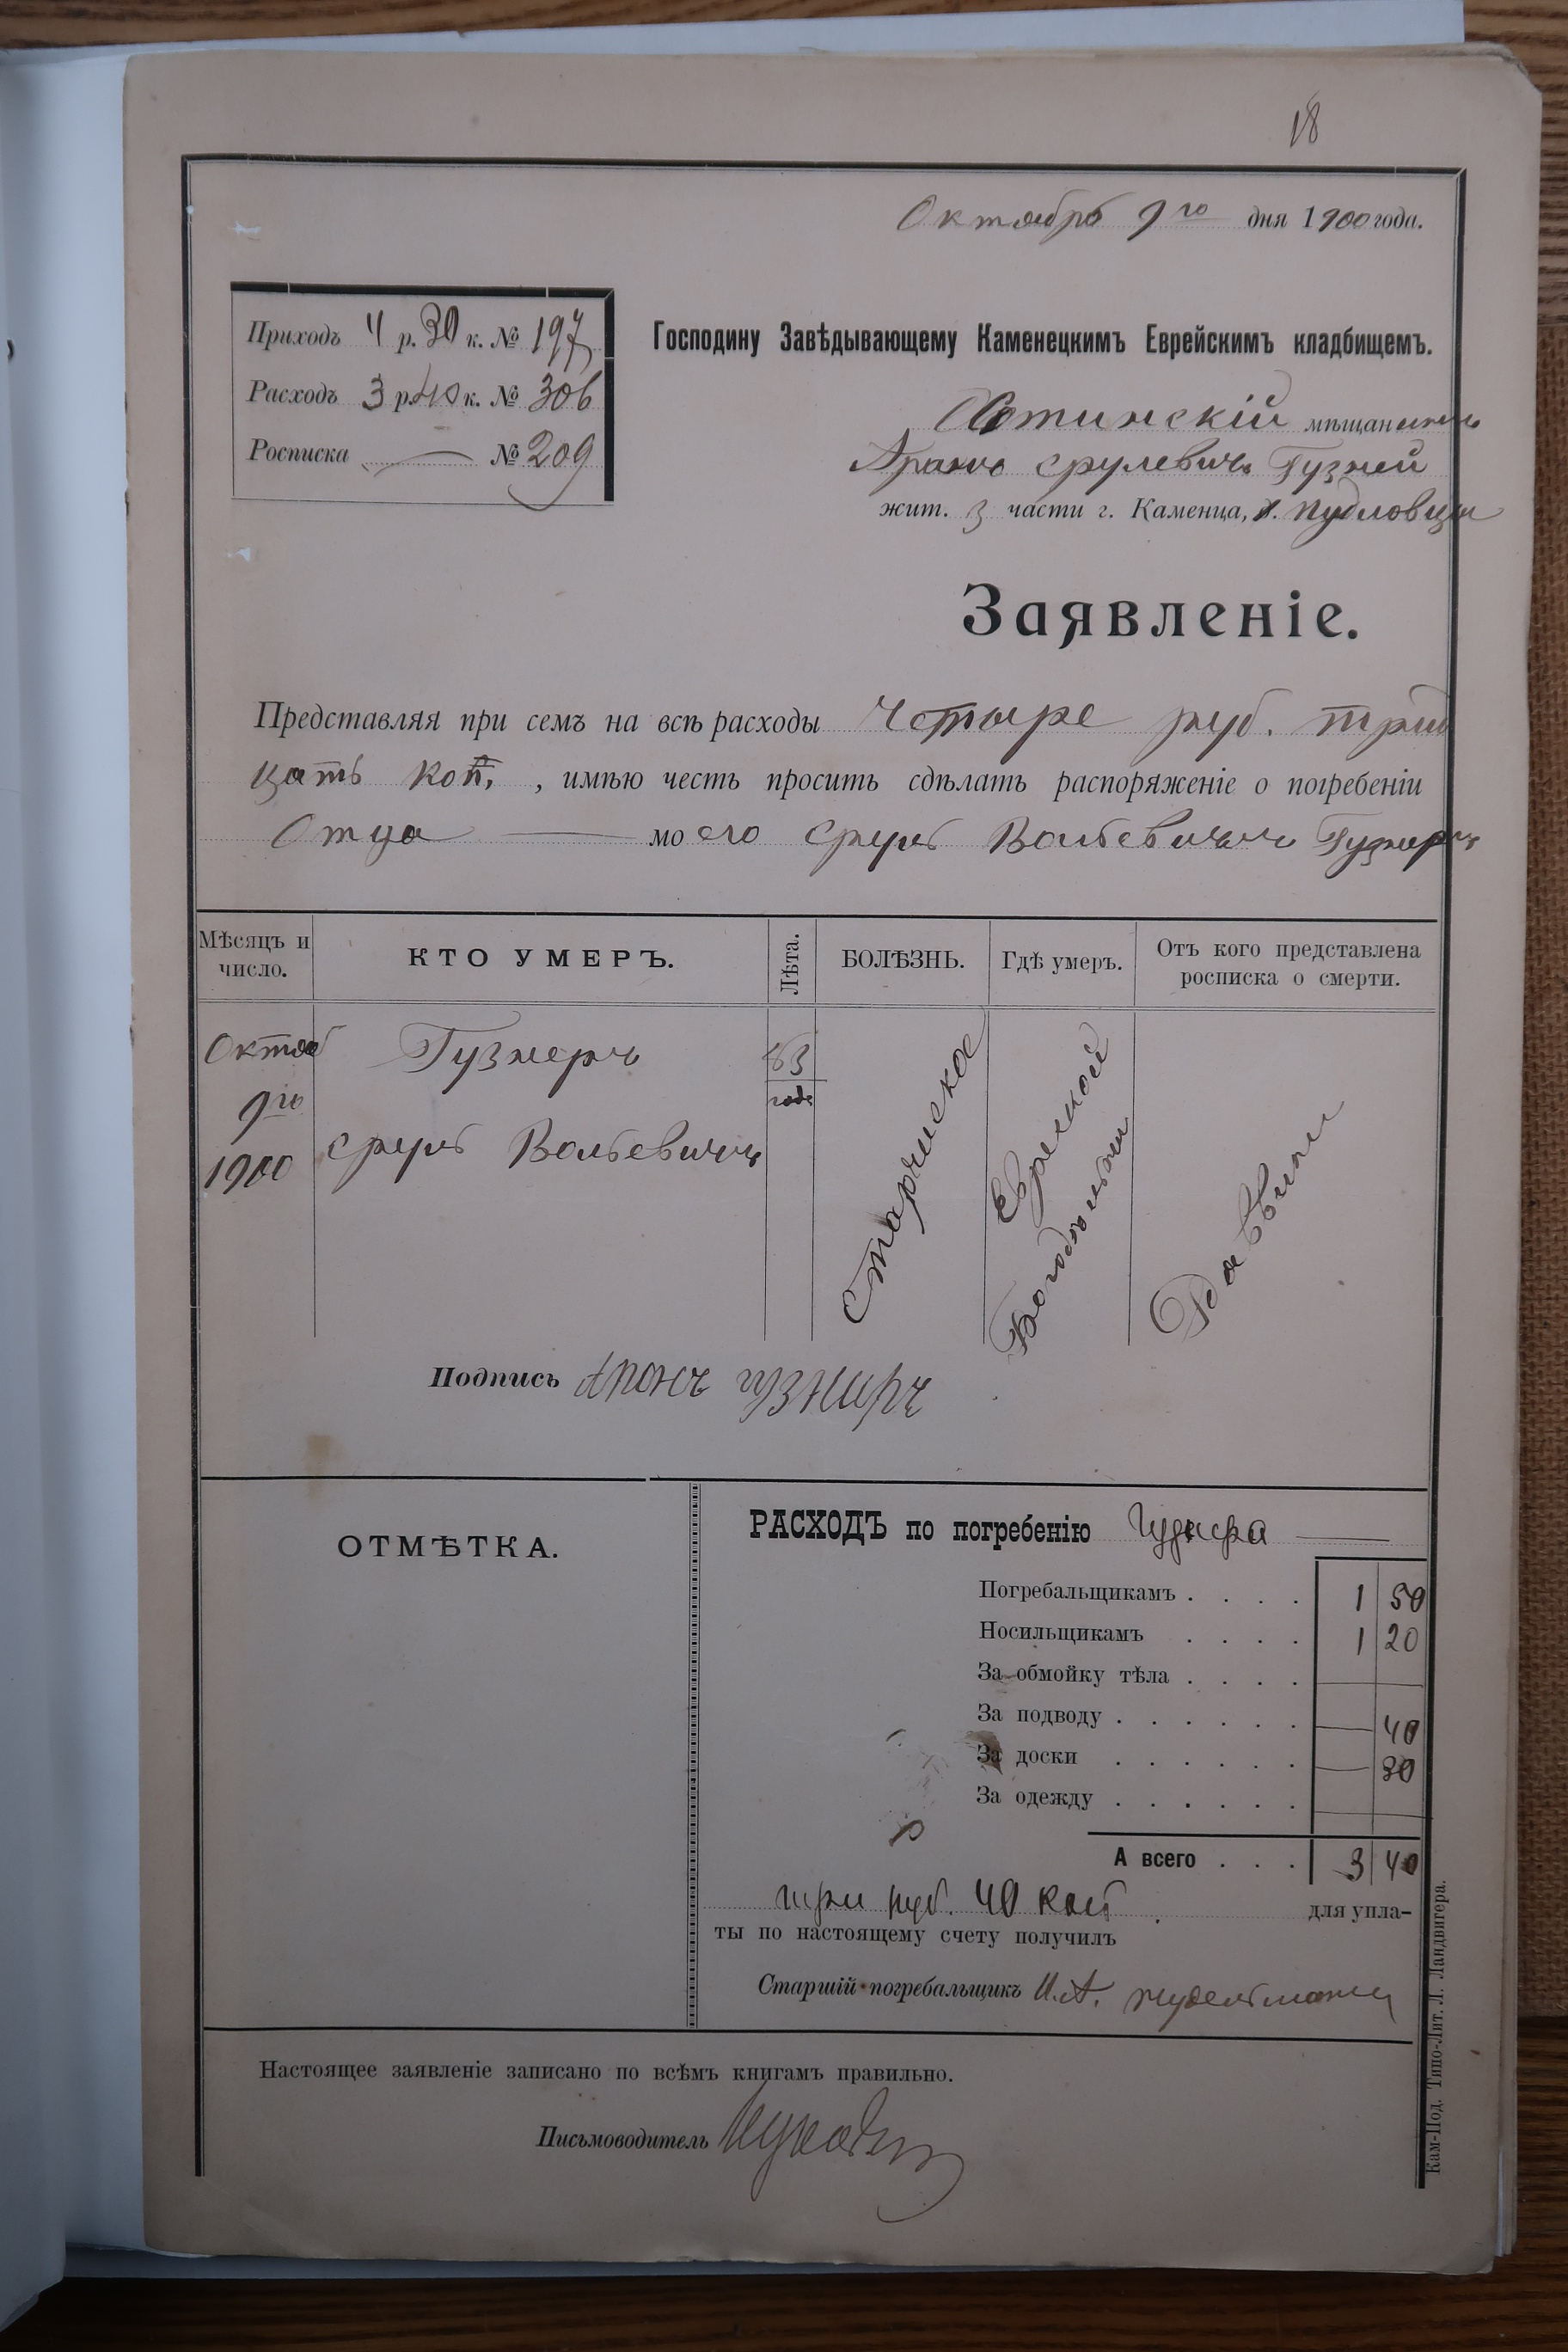 18
Октября 9го дня 1900 года.
Приходъ 4 р. 30 к. № 197
Расходъ 3 р. 40 к. № 306
Росписка — № 209
Господину Завѣдывающему Каменецкимъ Еврейскимъ кладбищемъ.
Хотинскій мѣщанинъ
Аронъ Срулевичъ Гузней
жит. 3 части г. Каменца, д. Пудловци
Заявленіе.
Представляя при семъ на всѣ расходы Четыре руб. трид
цать коп., имѣю честь просить сдѣлать распоряженіе о погребеніи
Отца — моего Сруль Вольвевичъ Гузнеръ
Мѣсяцъ и число.
КТО УМЕРЪ.
Лѣта.
БОЛѢЗНЬ.
Гдѣ умеръ.
Отъ кого представлена росписка о смерти.
Октяб
9го
1900
Гузнеръ
Сруль Вольвевичъ
83
года
Старческое
Еврейской
Богодельни
Подпись Аронъ гузниръ
ОТМѢТКА.
РАСХОДЪ по погребенію Гузнера
Погребальщикамъ . . . . 1 50
Носильщикамъ . . . . 1 20
За обмойку тѣла . . . . —
За подводу . . . . . . — 40
За доски . . . . . . — 30
За одежду . . . . . .
А всего . . . 3 40
три руб. 40 коп. для упла-
ты по настоящему счету получилъ
Старшій погребальщикъ И.А.
Настоящее заявленіе записано по всѣмъ книгамъ правильно.
Письмоводитель
Кам-Под. Типо-Лит. Л. Ландвигера.